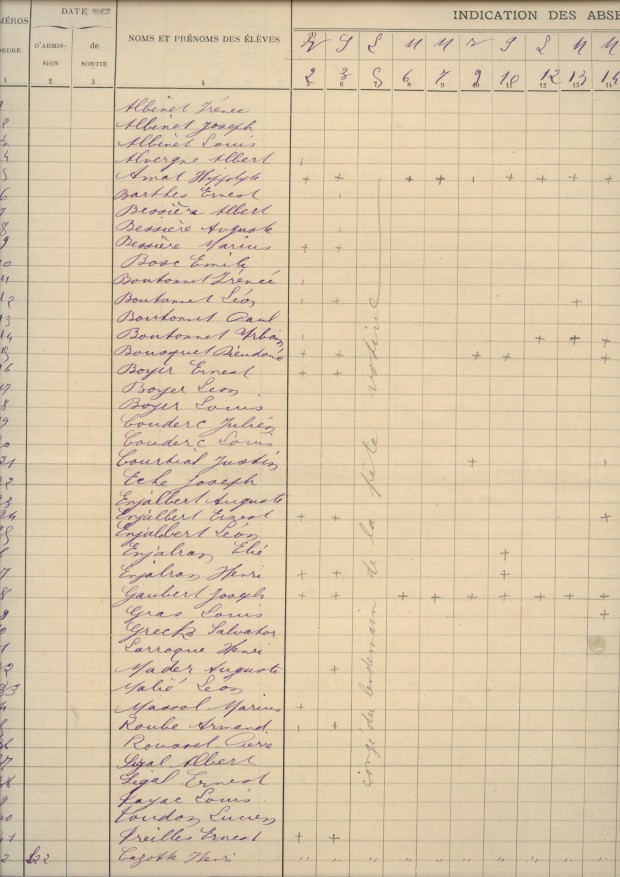 DATE
INDICATION DES ABSE
MÉROS
ORDRE
D'ADMIS-
SION
de
SORTIE
NOMS ET PRÉNOMS DES ÉLÈVES
V S L M M V S L M M
1 2 3 4
2 3 5 6 7 9 10 12 13 14
5 6 7 8 9 10 11 12 13 14
1 Albinet Irénée
2 Albinet Joseph
3 Albinet Louis
4 Alvergne Albert
5 Amat Hippolyte + + + + + + + + +
6 Barthes Ernest
7 Bessière Albert
8 Bessière Auguste
9 Bessière Marius + +
10 Bosc Emile
11 Boutonnet Irénée
12 Boutonnet Léon + +
13 Boutonnet Paul
14 Boutonnet Urbain + + +
15 Bousquet Dieudoné + + + + +
16 Boyer Ernest + +
17 Boyer Leon
18 Boyer Louis
19 Couderc Julien
20 Couderc Louis
21 Courtial Justin +
22 Eche Joseph
23 Enjalbert Auguste
24 Enjalbert Ernest + + +
25 Enjalbert Léon
Enjalran Elié +
7 Enjalran Henri + + +
8 Gaubert Joseph + + + + + + + + +
9 Gras Louis +
0 Salvator
1 Larroque Henri
2 Mader Auguste +
33 Malié Leon
Massol Marius +
Roube Armand +
Rousset Pierre
Sigal Albert
Sigal Ernest
9 Louis
Lucien
41 Ernest + +
2 Henri " " " " " " " " "
congé du lendemain de la fête votive